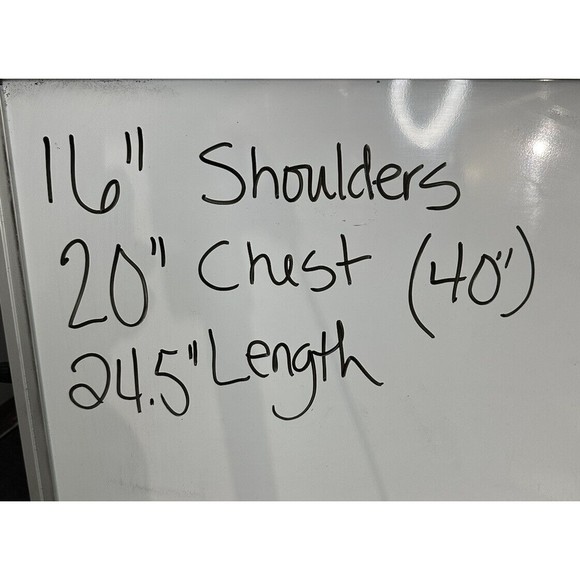 16" Shoulders
20" Chest (40")
24.5" Length